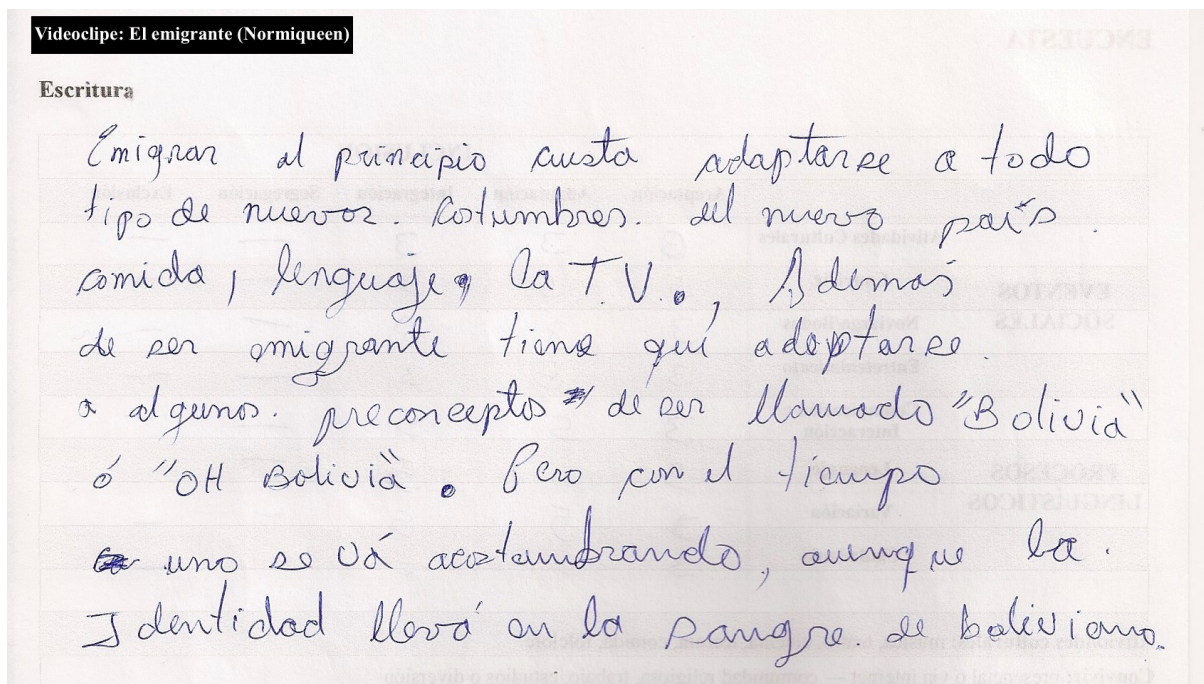 Videoclipe: El emigrante (Normiqueen)
Escritura
Emigrar al principio custa adaptarse a todo
tipo de nuevos. Costumbres. del nuevo país.
comida, lenguaje, la T.V., Además
de ser emigrante tiene qui adaptarse.
a algunos. preconceptos de ser llamado "Bolivia"
ó "OH Bolivia". Pero con el tiempo
uno se vá acostumbrando, aunque la.
Identidad llevá en la sangre de boliviano.